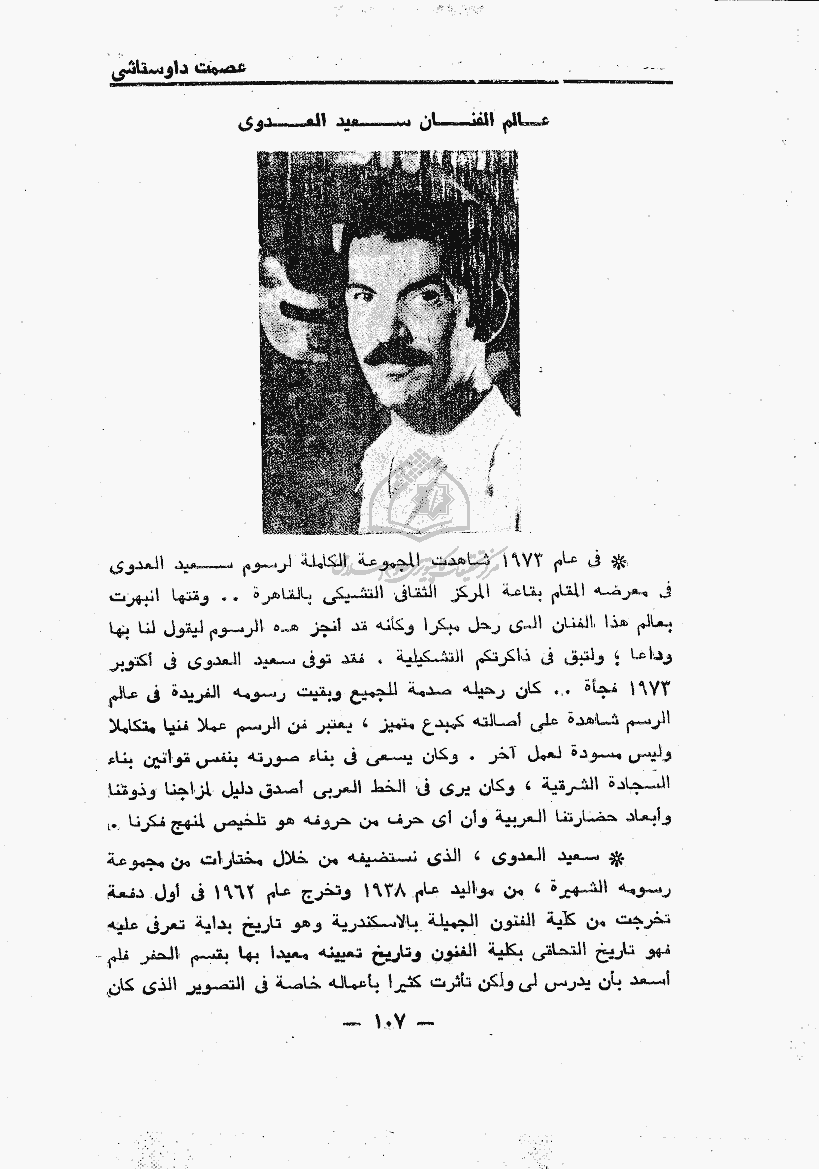 عصمت داوستاشى
عالم الفنان سعيد العدوى
* فى عام ١٩٧٣ شاهدت المجموعة الكاملة لرسوم سعيد العدوى
فى معرضه المقام بقاعة المركز الثقافى التشيكى بالقاهرة .. وقتها انبهرت
بعالم هذا الفنان الذى رحل مبكرا وكأنه قد أنجز هذه الرسوم ليقول لنا بها
وداعا ؛ ولتبق فى ذاكرتكم التشكيلية . فقد توفى سعيد العدوى فى أكتوبر
١٩٧٣ فجأة .. كان رحيله صدمة للجميع وبقيت رسومه الفريدة فى عالم
الرسم شاهدة على أصالته كمبدع متميز ، يعتبر فن الرسم عملا فنيا متكاملا
وليس مسودة لعمل آخر . وكان يسعى فى بناء صورته بنفس قوانين بناء
السجادة الشرقية ، وكان يرى فى الخط العربى أصدق دليل لمزاجنا وذوقنا
وأبعاد حضارتنا العربية وأن أى حرف من حروفه هو تلخيص لمنهج فكرنا ..
* سعيد العدوى ، الذى نستضيفه من خلال مختارات من مجموعة
رسومه الشهيرة ، من مواليد عام ١٩٣٨ وتخرج عام ١٩٦٢ فى أول دفعة
تخرجت من كلية الفنون الجميلة بالاسكندرية وهو تاريخ بداية تعرفى عليه
فهو تاريخ التحاقى بكلية الفنون وتاريخ تعيينه معيدا بها بقسم الحفر فلم
أسعد بأن يدرس لى ولكن تأثرت كثيرا بأعماله خاصة فى التصوير الذى كان
— ١٠٧ —